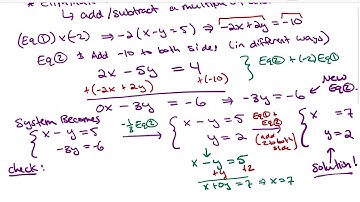 * Eliminat
↳ add/subtract a multiple
(Eq①)×(-2) ⇒ -2(x-y=5) ⇒ -2x+2y=-10
Eq② & Add -10 to both sides (in different ways)
2x-5y = 4
+(-2x+2y) +(-10) } Eq② + (-2)Eq①
0x-3y = -6 ⇒ -3y=-6 ← New Eq②.
System Becomes
{ x-y=5 -⅓Eq② { x-y=5 Eq①+Eq② { x =7
-3y=-6 y=2 (add 2 to both sides) y=2
check: x-y=5 solution!
+y +2
x+0y=7 ⇒ x=7